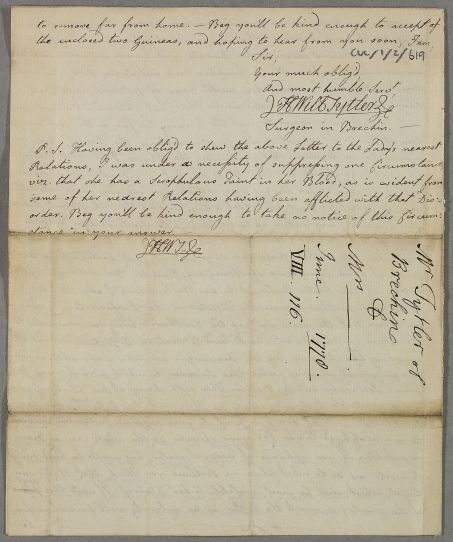 to remove far from home. — Beg youll be kind enough to accept of
the enclosed two Guineas, and hoping to hear from you soon, I am
Sir,
CUL/1/2/619
Your much obligd
And most humble Servt.
Willm Tytler
Surgeon in Brechin. —
P.S. Having been obligd to shew the above Letter to the Lady's nearest
Relations, I was under a necessity of suppressing one Circumstance
viz. that she has a Scrophulous Taint in her Blood, as is evident from
some of her nearest Relations having been afflicted with that Dis-
order. Beg youll be kind enough to take no notice of this Circum-
stance in your answer
Mr Tytler at
Brechin
Mrs
June. 1778.
VIII. 116.